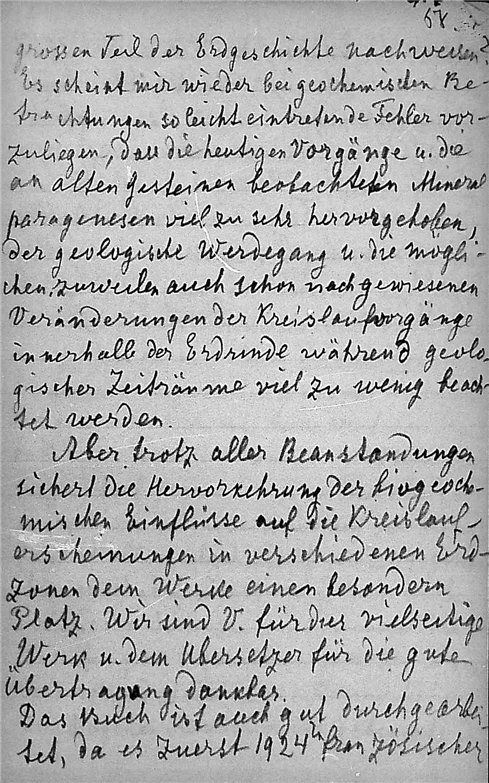 58
grossen Teil der Erdgeschichte nachweisen?
Es scheint mir wieder bei geochemischen Be-
trachtungen so leicht eintretende Fehler vor-
zuliegen, dass die heutigen Vorgänge u. die
an alten Gesteinen beobachteten Mineral
paragenesen viel zu sehr hervorgehoben,
der geologische Werdegang u. die mögli-
chen, zuweilen auch schon nachgewiesenen
Veränderungen der Kreislaufvorgänge
innerhalb der Erdrinde während geolo-
gischer Zeiträume viel zu wenig beach-
tet werden.
Aber trotz aller Beanstandungen
sichert die Hervorkehrung der biogeoch-
mischen Einflüsse auf die Kreislauf-
erscheinungen in verschiedenen Erd-
zonen dem Werke einen besondern
Platz. Wir sind V. für das vielseitige
Werk u. dem Übersetzer für die gute
Übertragung dankbar.
Das Buch ist auch gut durchgearbei-
tet, da es zuerst 1924 in französischer